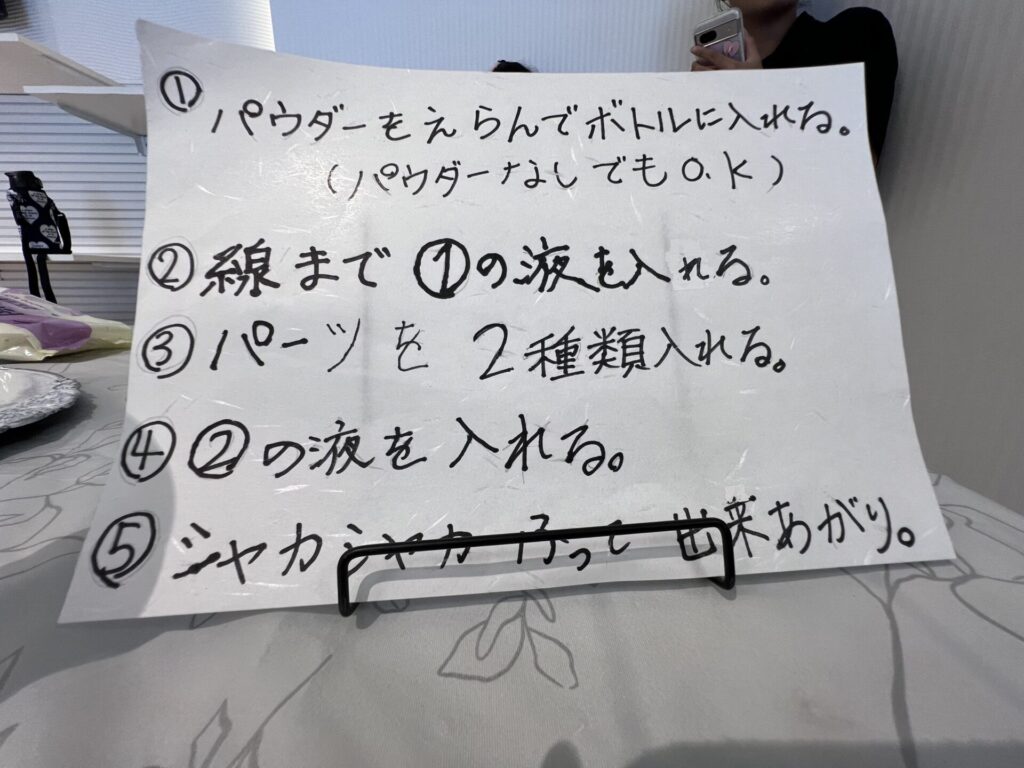 ① パウダーをえらんでボトルに入れる。
(パウダーなしでもO.K)
② 線まで①の液を入れる。
③ パーツを2種類入れる。
④ ②の液を入れる。
⑤ シャカシャカふって出来あがり。